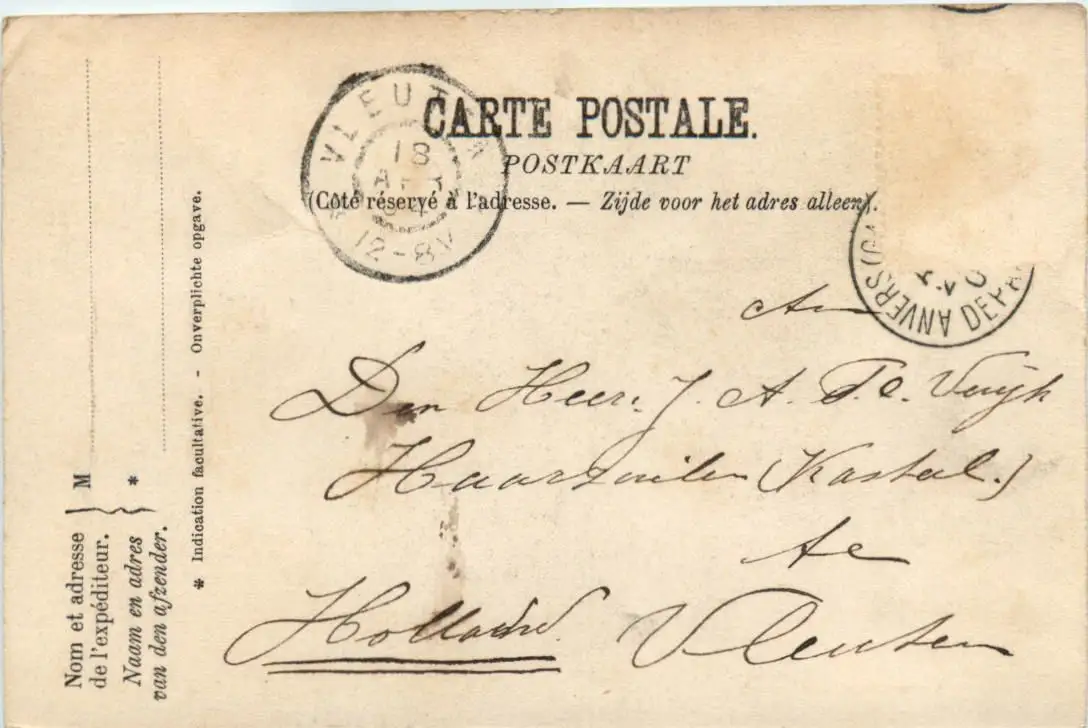 CARTE POSTALE.
POSTKAART
(Côté réservé à l'adresse. — Zijde voor het adres alleen).
VLEUTEN
18
04
12-8V
ANVERS (GA
DEPA
An
Den Heer. J. A.
Haarzuilen (Kasteel.)
te
Holland. Vleuten
Nom et adresse
de l'expéditeur. } M
Naam en adres
van den afzender. } *
* Indication facultative. - Onverplichte opgave.